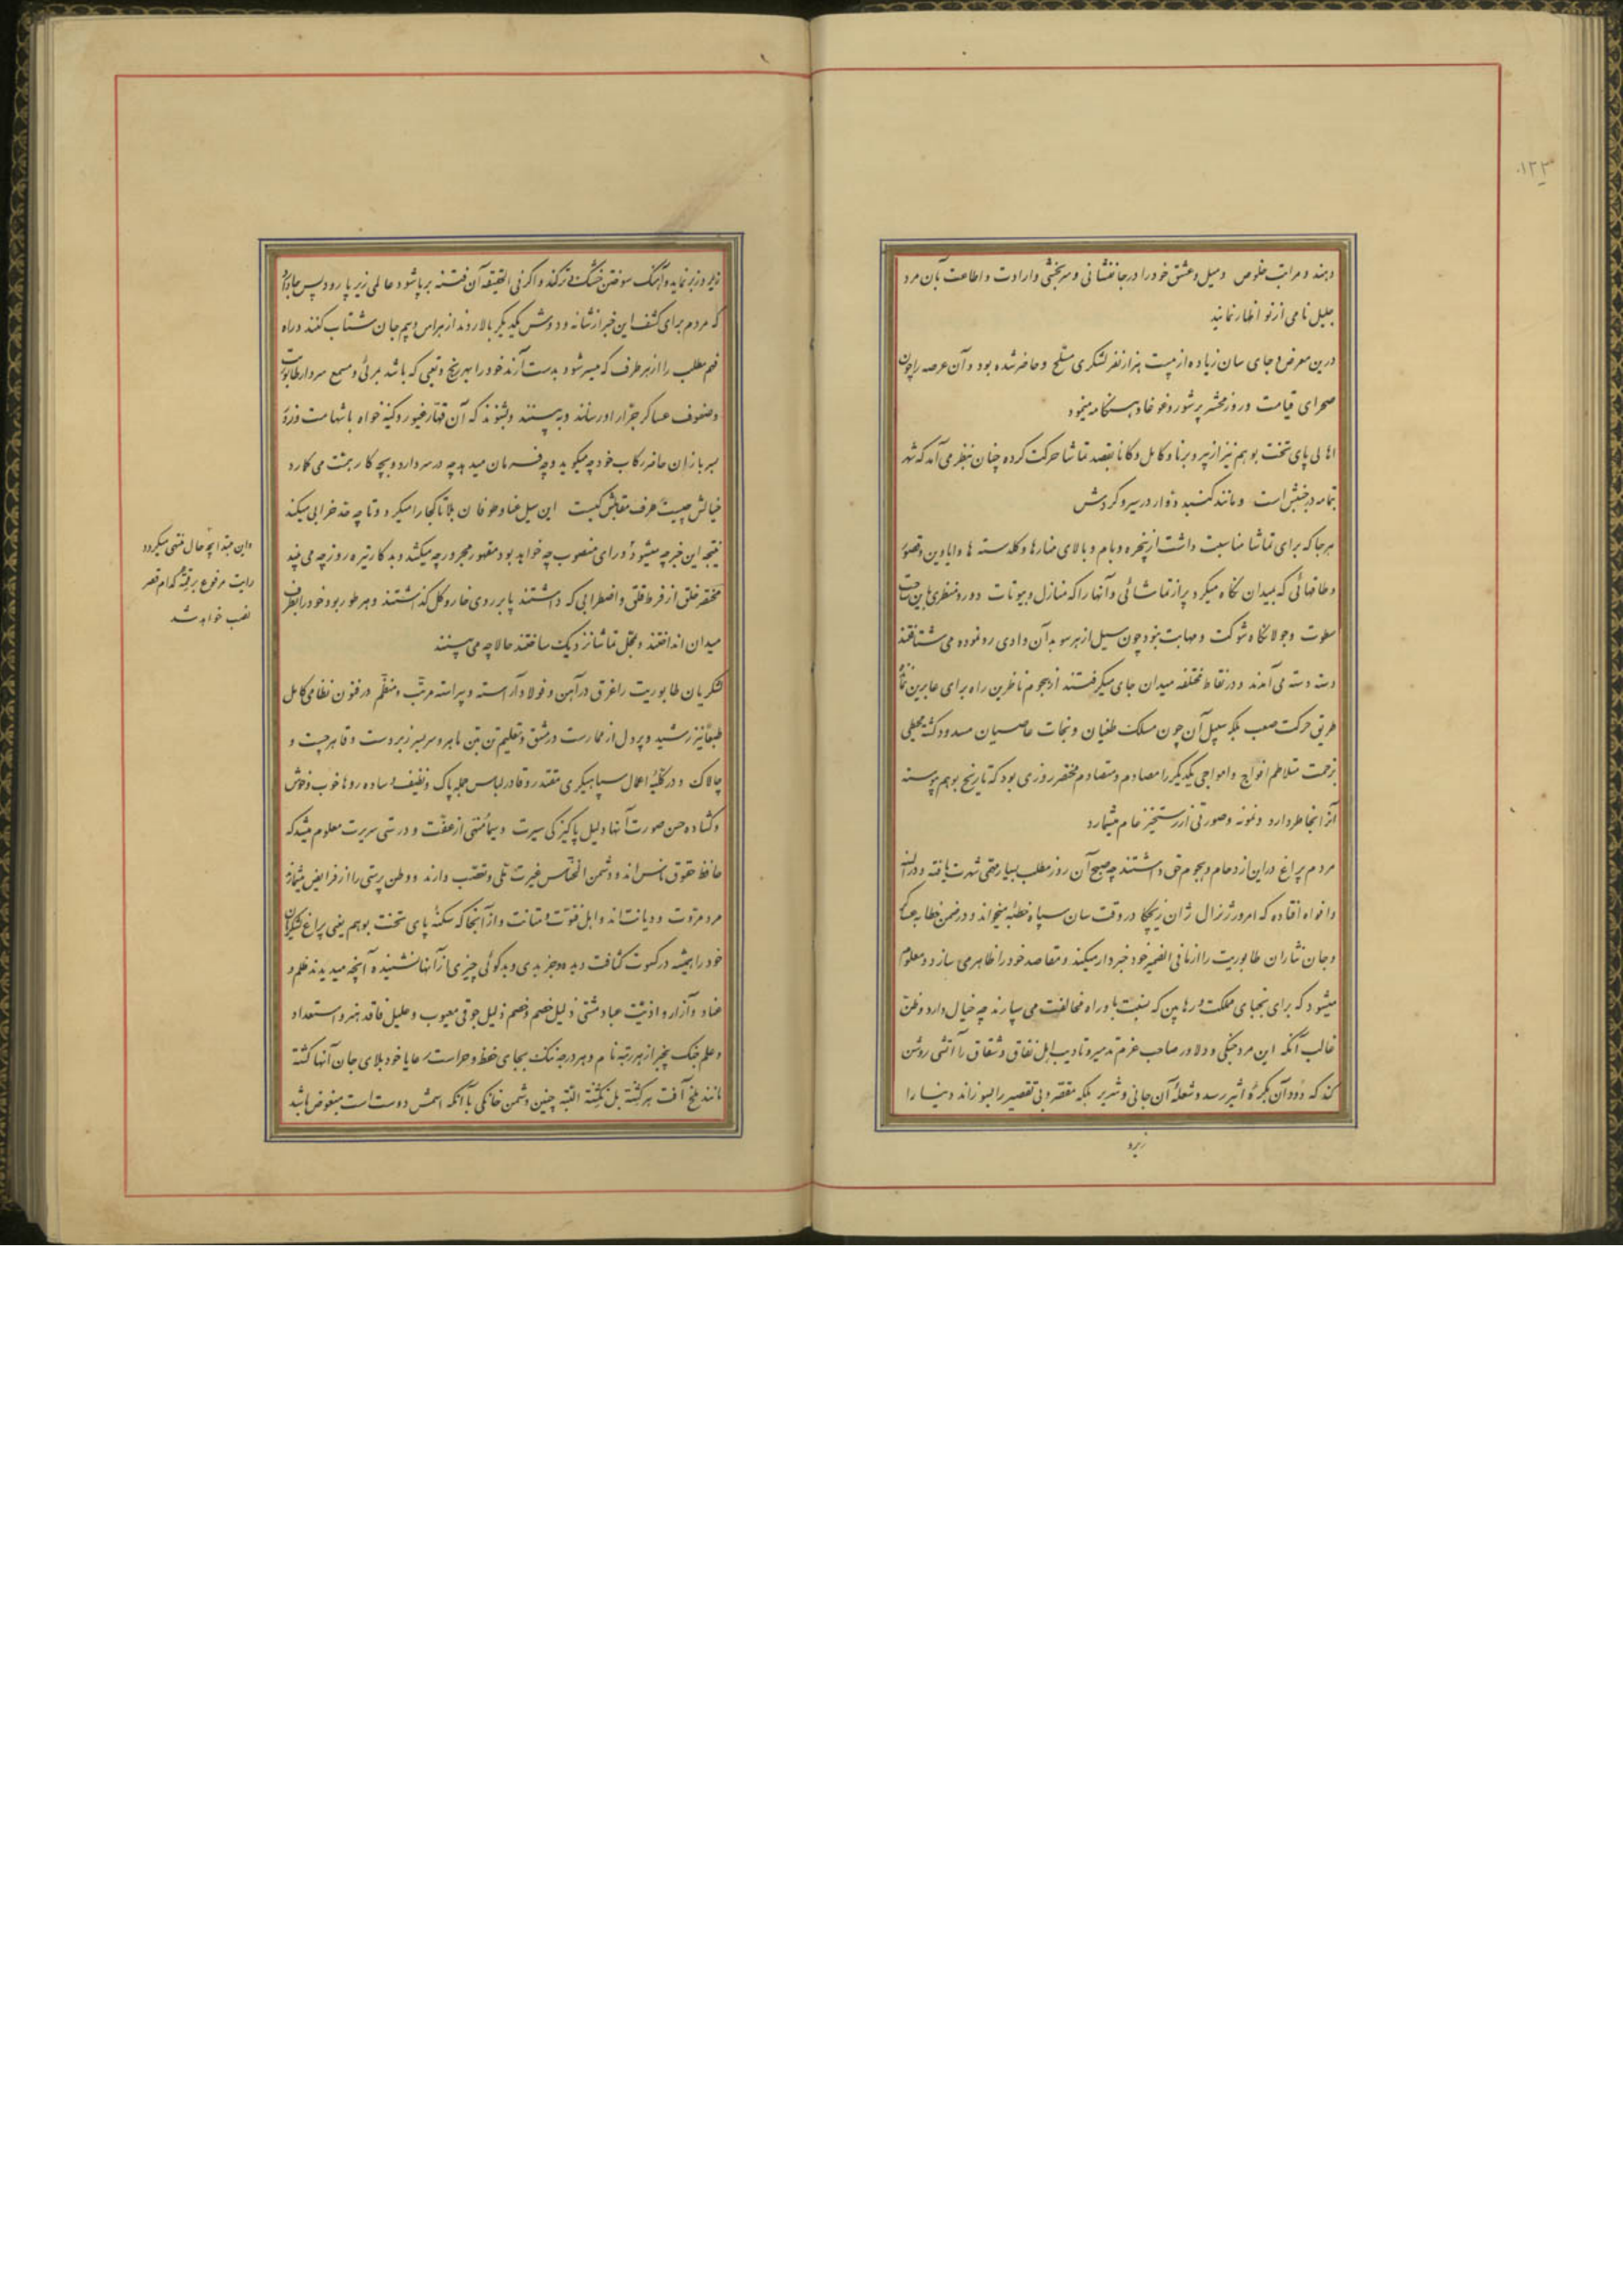 ۱۲۳
دهند و مراتب خلوص و میل و عشق خود را در جانفشانی و سربخشی و ارادت و اطاعت بآن مرد
جلیل نامی از نو اظهار نمایند
درین معرض و جای سان زیاده از بیست هزار نفر لشکری مسلح و حاضر شده بود و آن عرصه را چون
صحرای قیامت و روز محشر پر شور و غوغا و هنگامه مینمود
اهالی پای تخت بوهم نیز از پیر و برنا و کامل و کانا بقصد تماشا حرکت کرده چنان بنظر می‌آمد که شهر
بتمامه در جنبش است و مانند گنبد دوار در سیر و گردش
هر جا که برای تماشا مناسبت داشت از پنجره و بام و بالای منارها و گلدسته ها و ایاوین و قصور
و طاقهائی که بمیدان نگاه میکرد پر از تماشائی و آنها را که منازل و بیوتات دور و منظری باین ساحت
سطوت و جولانگاه شوکت و مهابت نبود چون سیل از هر سو بدآن وادی رو نموده می شتافتند
دسته دسته می‌آمدند و در نقاط مختلفه میدان جای میگرفتند از هجوم ناظرین راه برای عابرین
طریق حرکت صعب بلکه سبیل آن چون مسلک طغیان و نجات عاصیان مسدود گشته محیطی
بزحمت متلاطم افواج و امواجی یکدیگر را مصادم و متصادم مختصر روزی بود که تاریخ بوهم پیوسته
آنرا بخاطر دارد و نمونه و صورتی از رستخیز عام میشمارد
مردم پراغ در این ازدحام و هجوم حق داشتند چه صبح آن روز مطلب بسیار مهمی شهرت یافته و در السنه
و افواه افتاده که امروز ژنرال ژان زیچکا در وقت سان سپاه خطبه میخواند و در ضمن خطابه عساکر
و جان نثاران طابوریت را از ما فی الضمیر خود خبردار میکند و مقاصد خود را ظاهر می سازد و معلوم
میشود که برای نجبای مملکت و رهابین که بنسبت باو راه مخالفت می سپارند چه خیال دارد و ظن
غالب آنکه این مرد جنگی و دلاور صاحب عزم تدمیر و تادیب اهل نفاق و شقاق را آتشی روشن
کند که دود آن بکره اثیر رسد و شعله آن جانی و شریر بلکه مقصر و بی تقصیر را بسوزاند دنیا را
زیر و
زیر و زبر نماید و آهنگ سوختن خشک و تر کند و اگر فی الحقیقه آن فتنه بر پا شود عالمی زیر پا رود پس جا دارد
که مردم برای کشف این خبر از شانه و دوش یکدیگر بالا روند از هراس و بیم جان شتاب کنند و راه
فهم مطلب را از هر طرف که میسر شود بدست آرند خود را بهر رنج و تعبی که باشد بمرئی و مسمع سردار طابوریت
و صفوف عساکر جرار او رسانند و به بینند و بشنوند که آن قهار غیور و کینه خواه با شهامت و زور
بسربازان حاضر رکاب خود چه میگوید و چه فرمان میدهد چه در سر دارد و بچه کار همت می گمارد
خیالش چیست طرف مقابلش کیست این سیل فنا و طوفان بلا تا کجا را میگیرد و تا چه حد خرابی میکند
نتیجه این خبر چه میشود و رای منصوب چه خواهد بود مقهور مجرور چه میکشد و بدکار تیره روز چه می بیند
مختصر خلق از فرط قلق و اضطرابی که داشتند پا بر روی خار و گل گذاشتند و بهر طور بود خود را بطرف
میدان انداختند و محل تماشا نزدیک ساختند حالا چه می بینند
لشکریان طابوریت را غرق در آهن و فولاد آراسته و پیراسته مرتب و منظم در فنون نظامی کامل
طبعاً نیز رشید و پر دل از ممارست در مشق و تعلیم تن بتن ماهر و سربسر زبردست و قاهر چست و
چالاک و در کلیه اعمال سپاهیگری مقتدر و قادر لباس جمله پاک و نظیف و ساده روها خوب و خوش
و گشاده حسن صورت آنها دلیل پاکیزگی سیرت و سیما مُنبی از عفت و درستی سریرت معلوم میشد که
حافظ حقوق ناس‌اند و دشمن الخناس غیرت ملی و تعصب دارند و وطن پرستی را از فرایض میشمارند
مرد مروت و دیانت‌اند و اهل فتوت و متانت و از آنجا که سکنه پای تخت بوهم یعنی پراغ لشکریان
خود را همیشه در کسوت کثافت دیده و جز بدی و بدگوئی چیزی از آنها نشنیده آنچه میدیدند ظلم و
عناد و آزار و اذیت عباد مشتی ذلیل خصم و خصم ذلیل جوقی معیوب و علیل فاقد هنر و استعداد
و علم جنگ بیخبر از هر رتبه نام و بهر درجه ننگ بجای حفظ و حراست رعایا خود بلای جان آنها گشته
مانند ملخ آفت هر کشته بل نکشته البته چنین دشمن خانگی با آنکه اسمش دوست است مبغوض باشد
و این مبتدا بچه حال منتهی میگردد
رایت مرفوع بر قبه کدام قصر
نصب خواهد شد